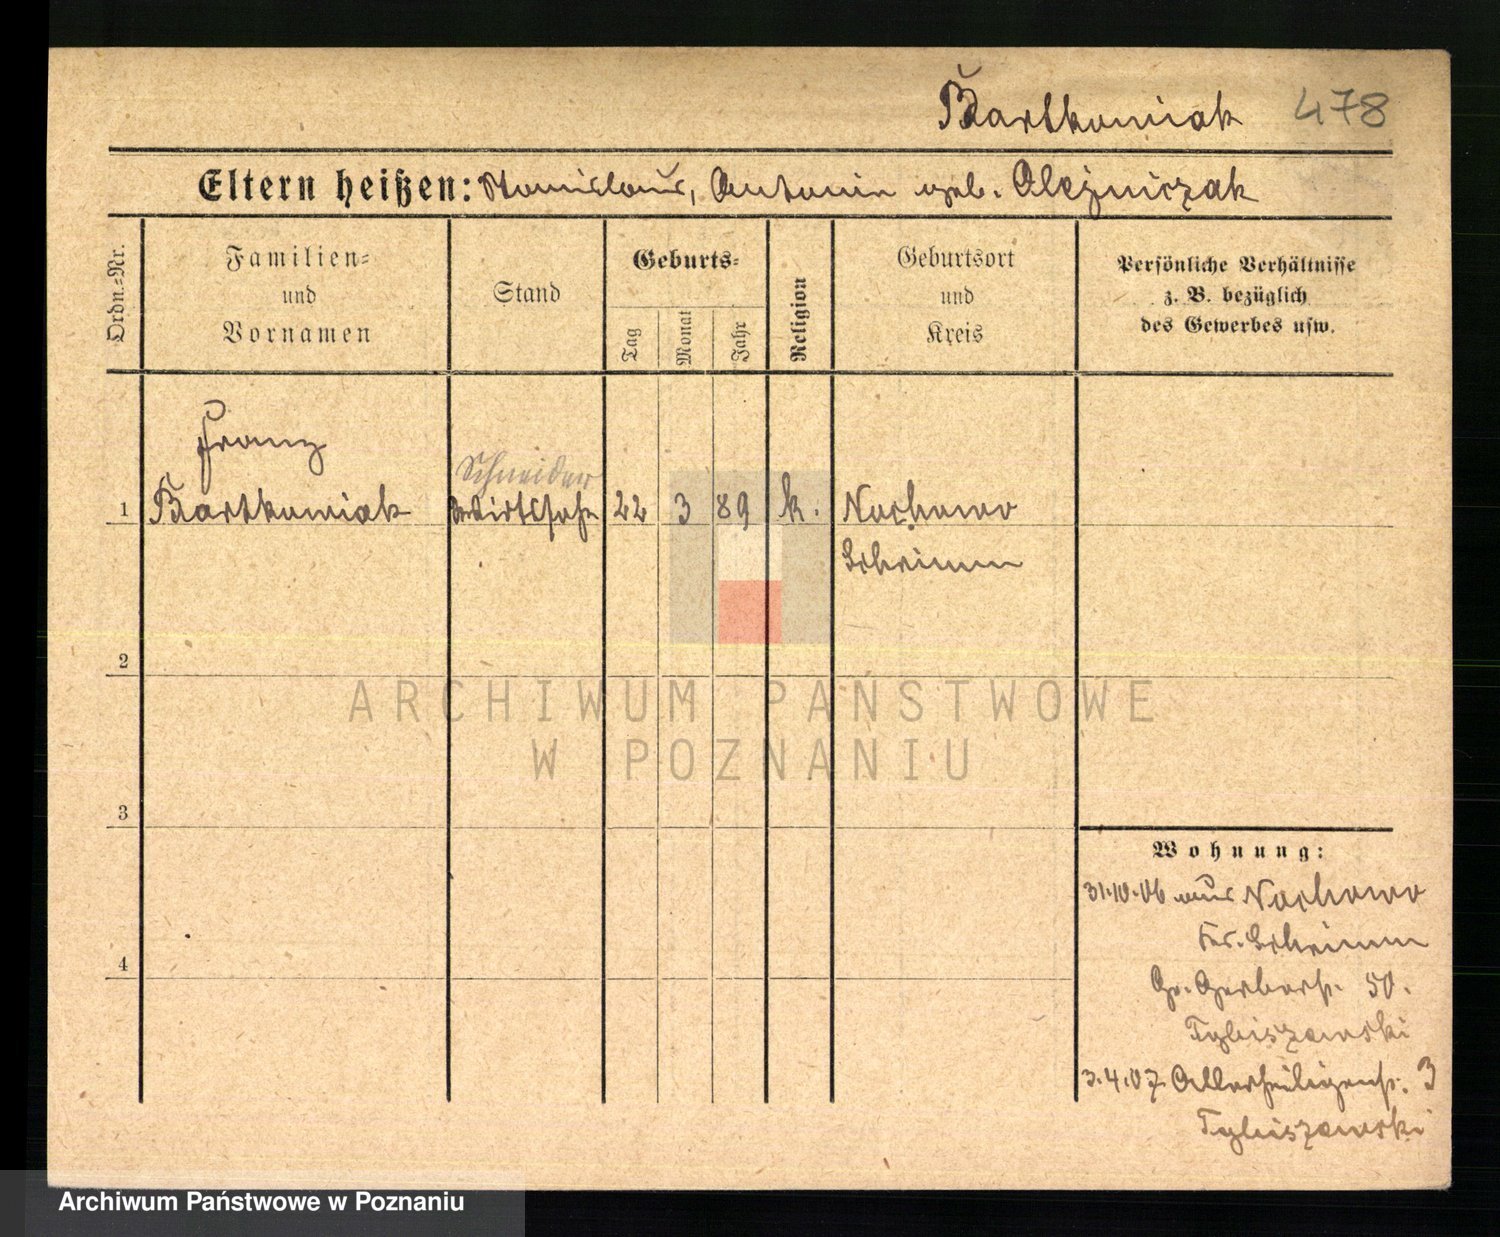 Bartkowiak 478
Eltern heißen: Stanislaus, Antonie geb. Olejniczak
Ordn.-Nr.
Familien- und Vornamen
Stand
Geburts-
Tag
Monat
Jahr
Religion
Geburtsort und Kreis
Persönliche Verhältnisse z. B. bezüglich des Gewerbes usw.
Franz
Schneider
1 Bartkowiak Wirtssohn 22 3 89 k. Nochowo
Schrimm
2
ARCHIWUM PAŃSTWOWE
W POZNANIU
3
Wohnung:
31.10.06 aus Nochowo
Krs. Schrimm
4
Gr. Gerberst. 50.
3.4.07 Allerheiligenst. 3
Archiwum Państwowe w Poznaniu